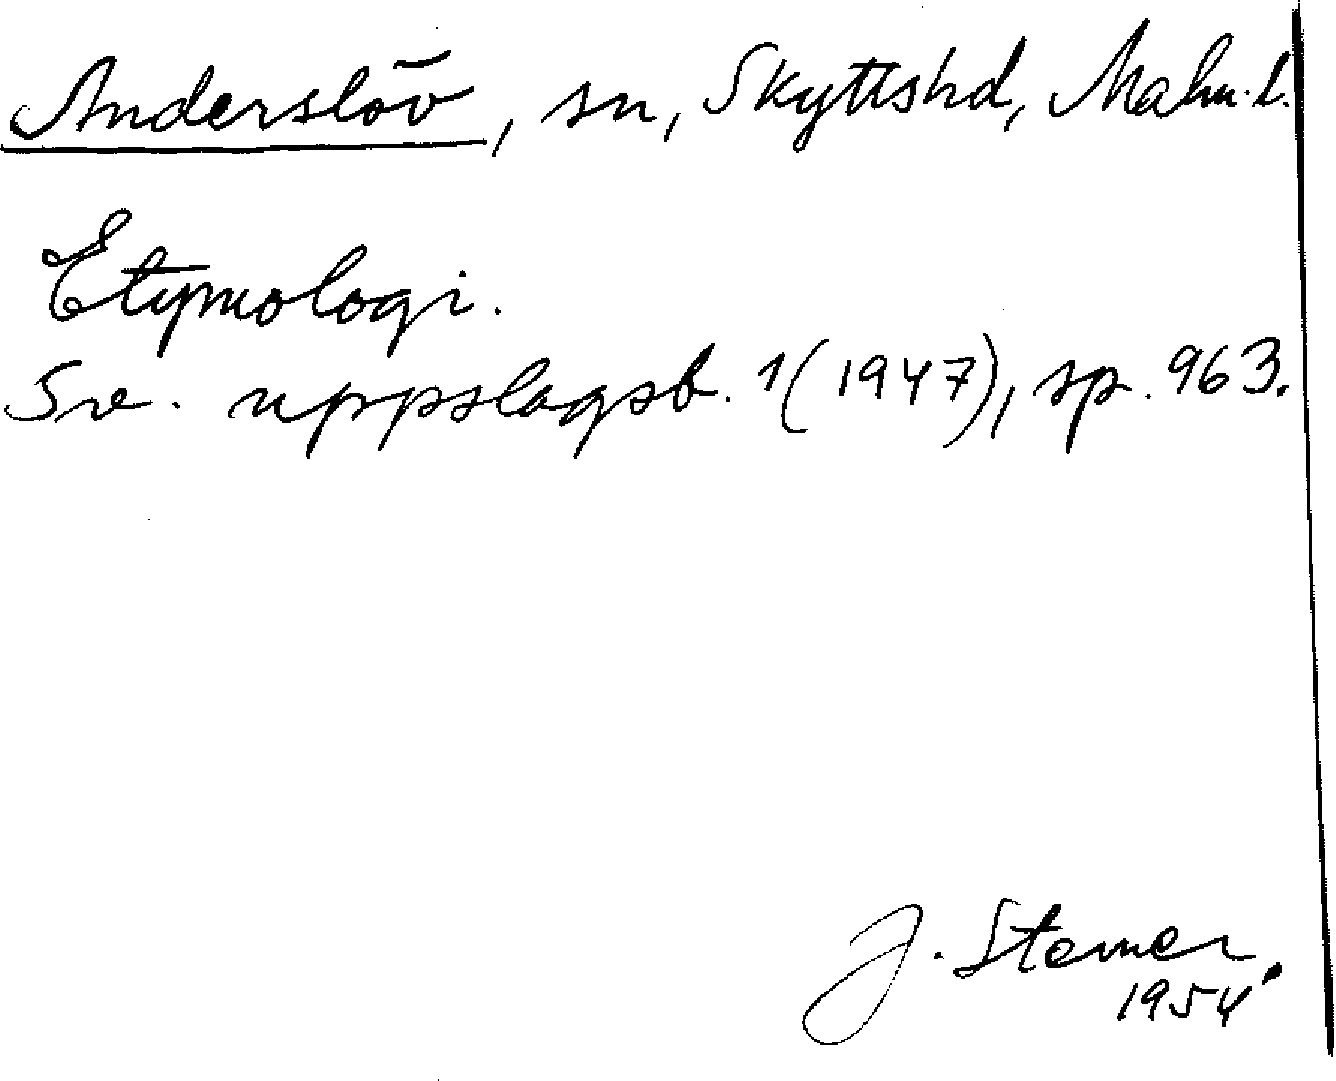 Anderslöv, sn, Skyttshd, Malm.l.
Etymologi.
Sv. uppslagsb. 1 (1947), sp. 963.
J. Stemer.
1954